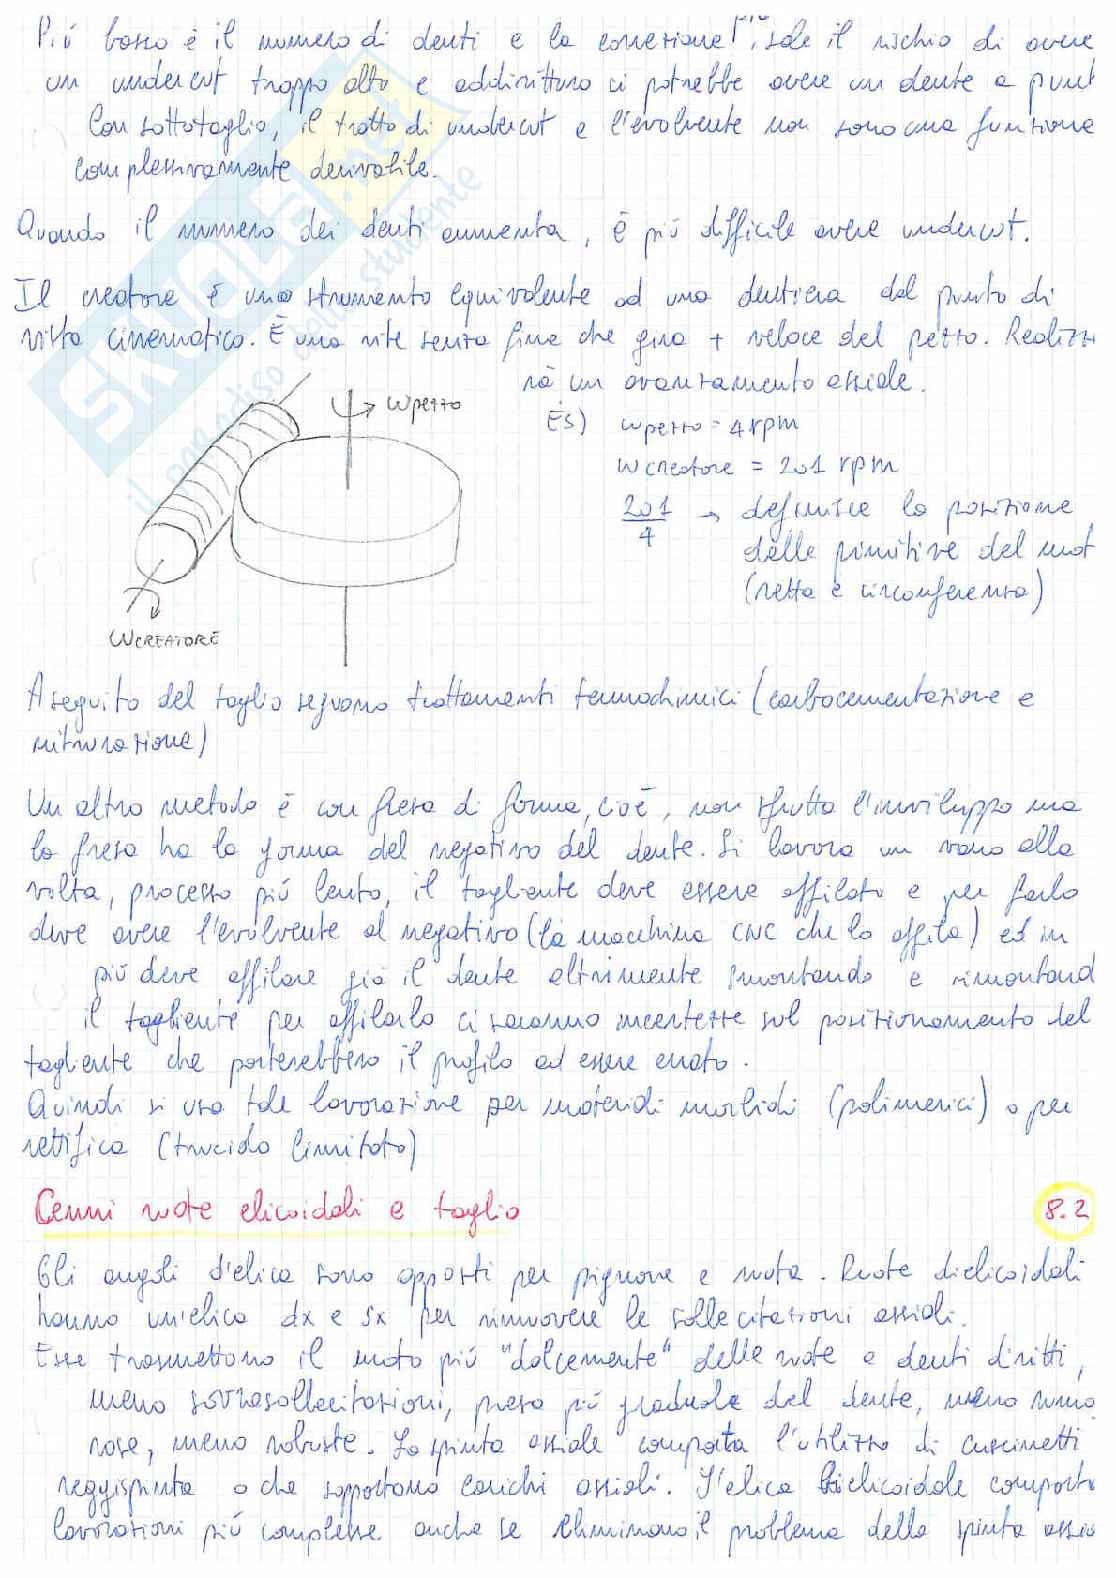 Più basso è il numero di denti e la correzione più, sale il rischio di avere
un undercut troppo alto e addirittura ci potrebbe avere un dente a punt
Con sottotaglio, il tratto di undercut e l'evolvente non sono una funzione
complessivamente derivabile.
Quando il numero dei denti aumenta, è più difficile avere undercut.
Il creatore è uno strumento equivalente ad una dentiera dal punto di
vista cinematico. È una vite senza fine che gira + veloce del pezzo. Realizze
rà un avanzamento assiale.
ωPEZZO
ES) ωpezzo = 4 rpm
ωcreatore = 201 rpm
201/4 → definisce la posizione
delle primitive del mot
(retta e circonferenza)
ωCREATORE
A seguito del taglio seguono trattamenti termochimici (carbocementazione e
nitrurazione)
Un altro metodo è con fresa di forma, cioè, non sfrutta l'inviluppo ma
la fresa ha la forma del negativo del dente. Si lavora un vano alla
volta, processo più lento, il tagliente deve essere affilato e per farlo
deve avere l'evolvente al negativo (la macchina CNC che lo affila) ed in
più deve affilare già il dente altrimente smontando e rimontand
il tagliente per affilarlo ci saranno incertezze sul posizionamento del
tagliente che porterebbero il profilo ad essere errato.
Quindi si usa tale lavorazione per materiali morbidi (polimerici) o per
rettifica (truciolo limitato)
Cenni ruote elicoidali e taglio
8.2
Gli angoli d'elica sono opposti per pignone e ruota. Ruote dielicoidali
hanno un'elica dx e sx per rimuovere le sollecitazioni assiali.
Esse trasmettono il moto più "dolcemente" delle ruote a denti diritti,
meno sovrasollecitazioni, presa più graduale del dente, meno rumo
rose, meno robuste. La spinta assiale comporta l'utilizzo di cuscinetti
reggispinta o che sopportano carichi assiali. L'elica bielicoidale comporta
lavorazioni più complesse anche se eliminano il problema della spinta assia
SKUOLA.net
il paradiso dello studente